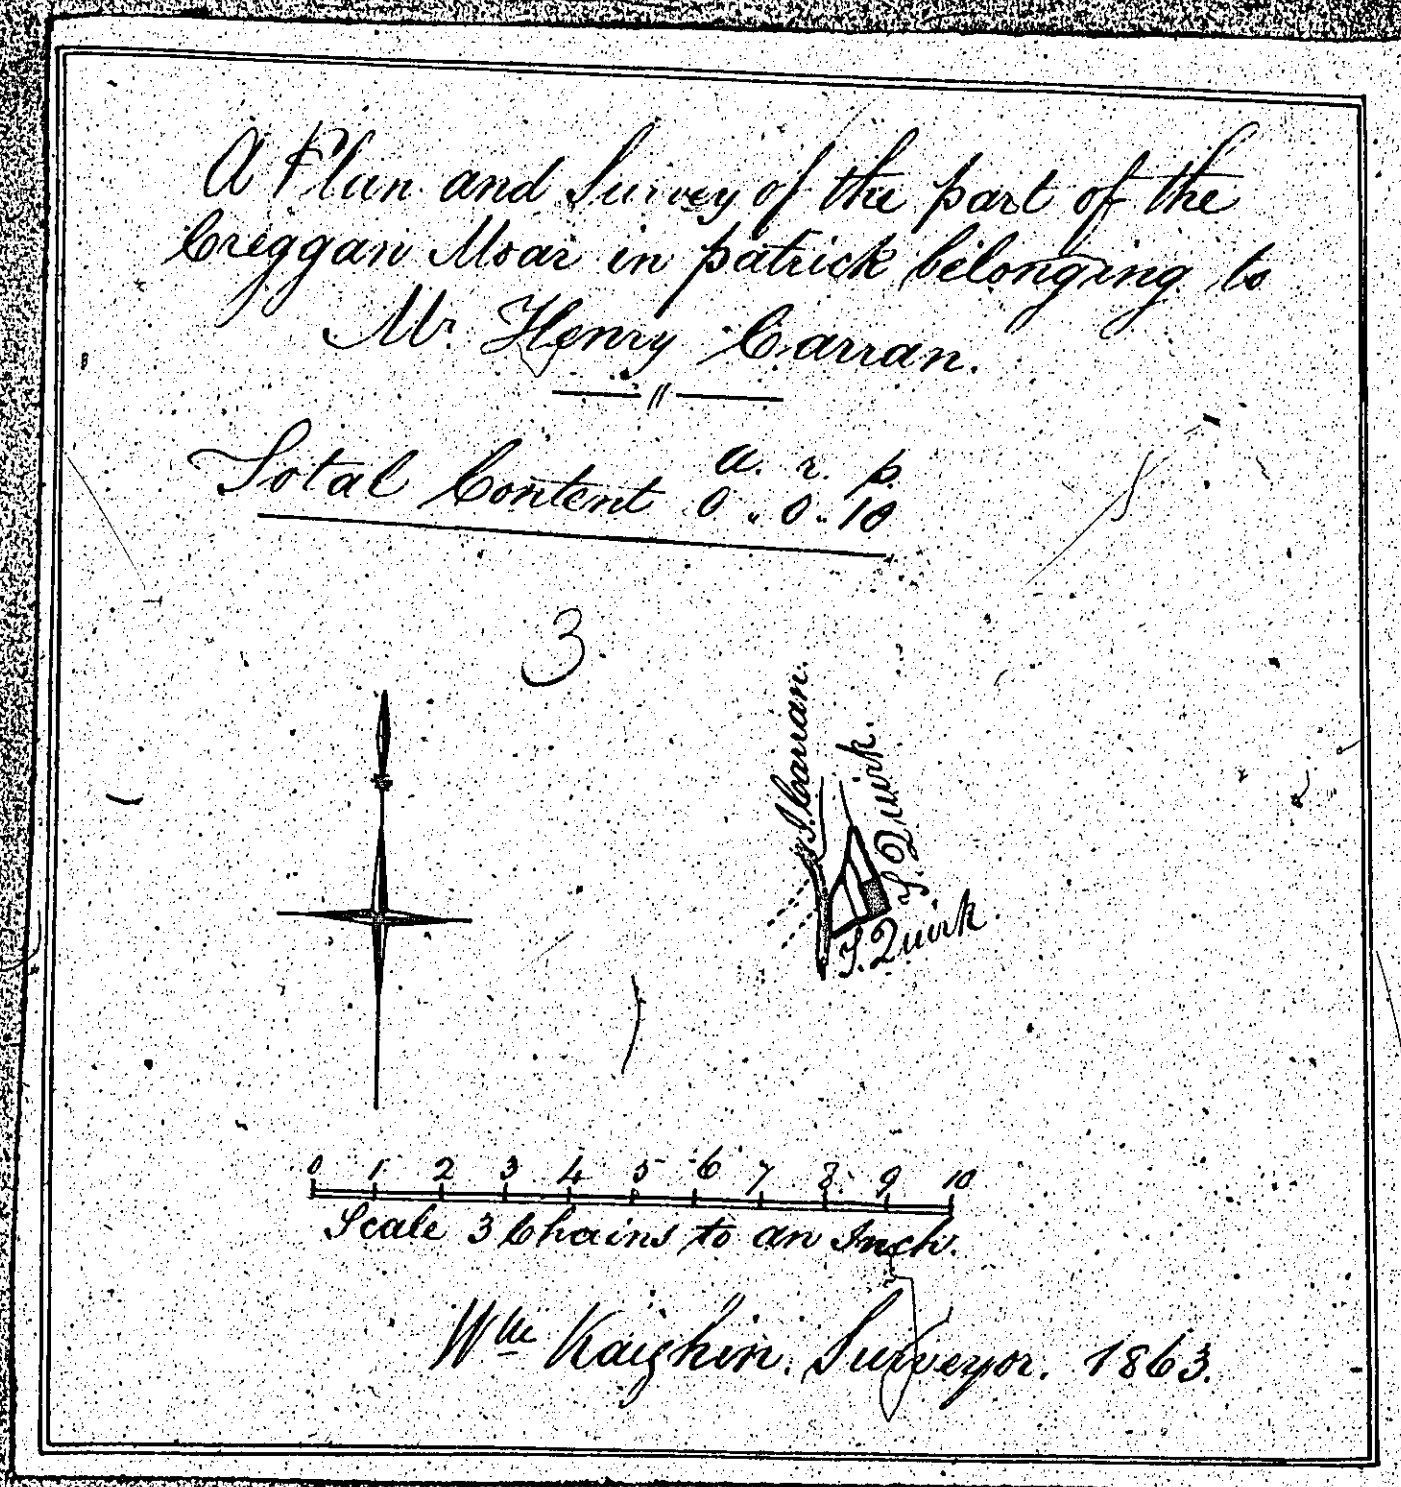 A Plan and Survey of the part of the
Creggan Moar in patrick belonging to
Mr. Henry Carran.
a. r. p.
Total Content 0 " 0 " 10
3
Carran.
J. Quirk.
J. Quirk
0 1 2 3 4 5 6 7 8 9 10
Scale 3 Chains to an Inch.
Wm Kaighin. Surveyor. 1863.